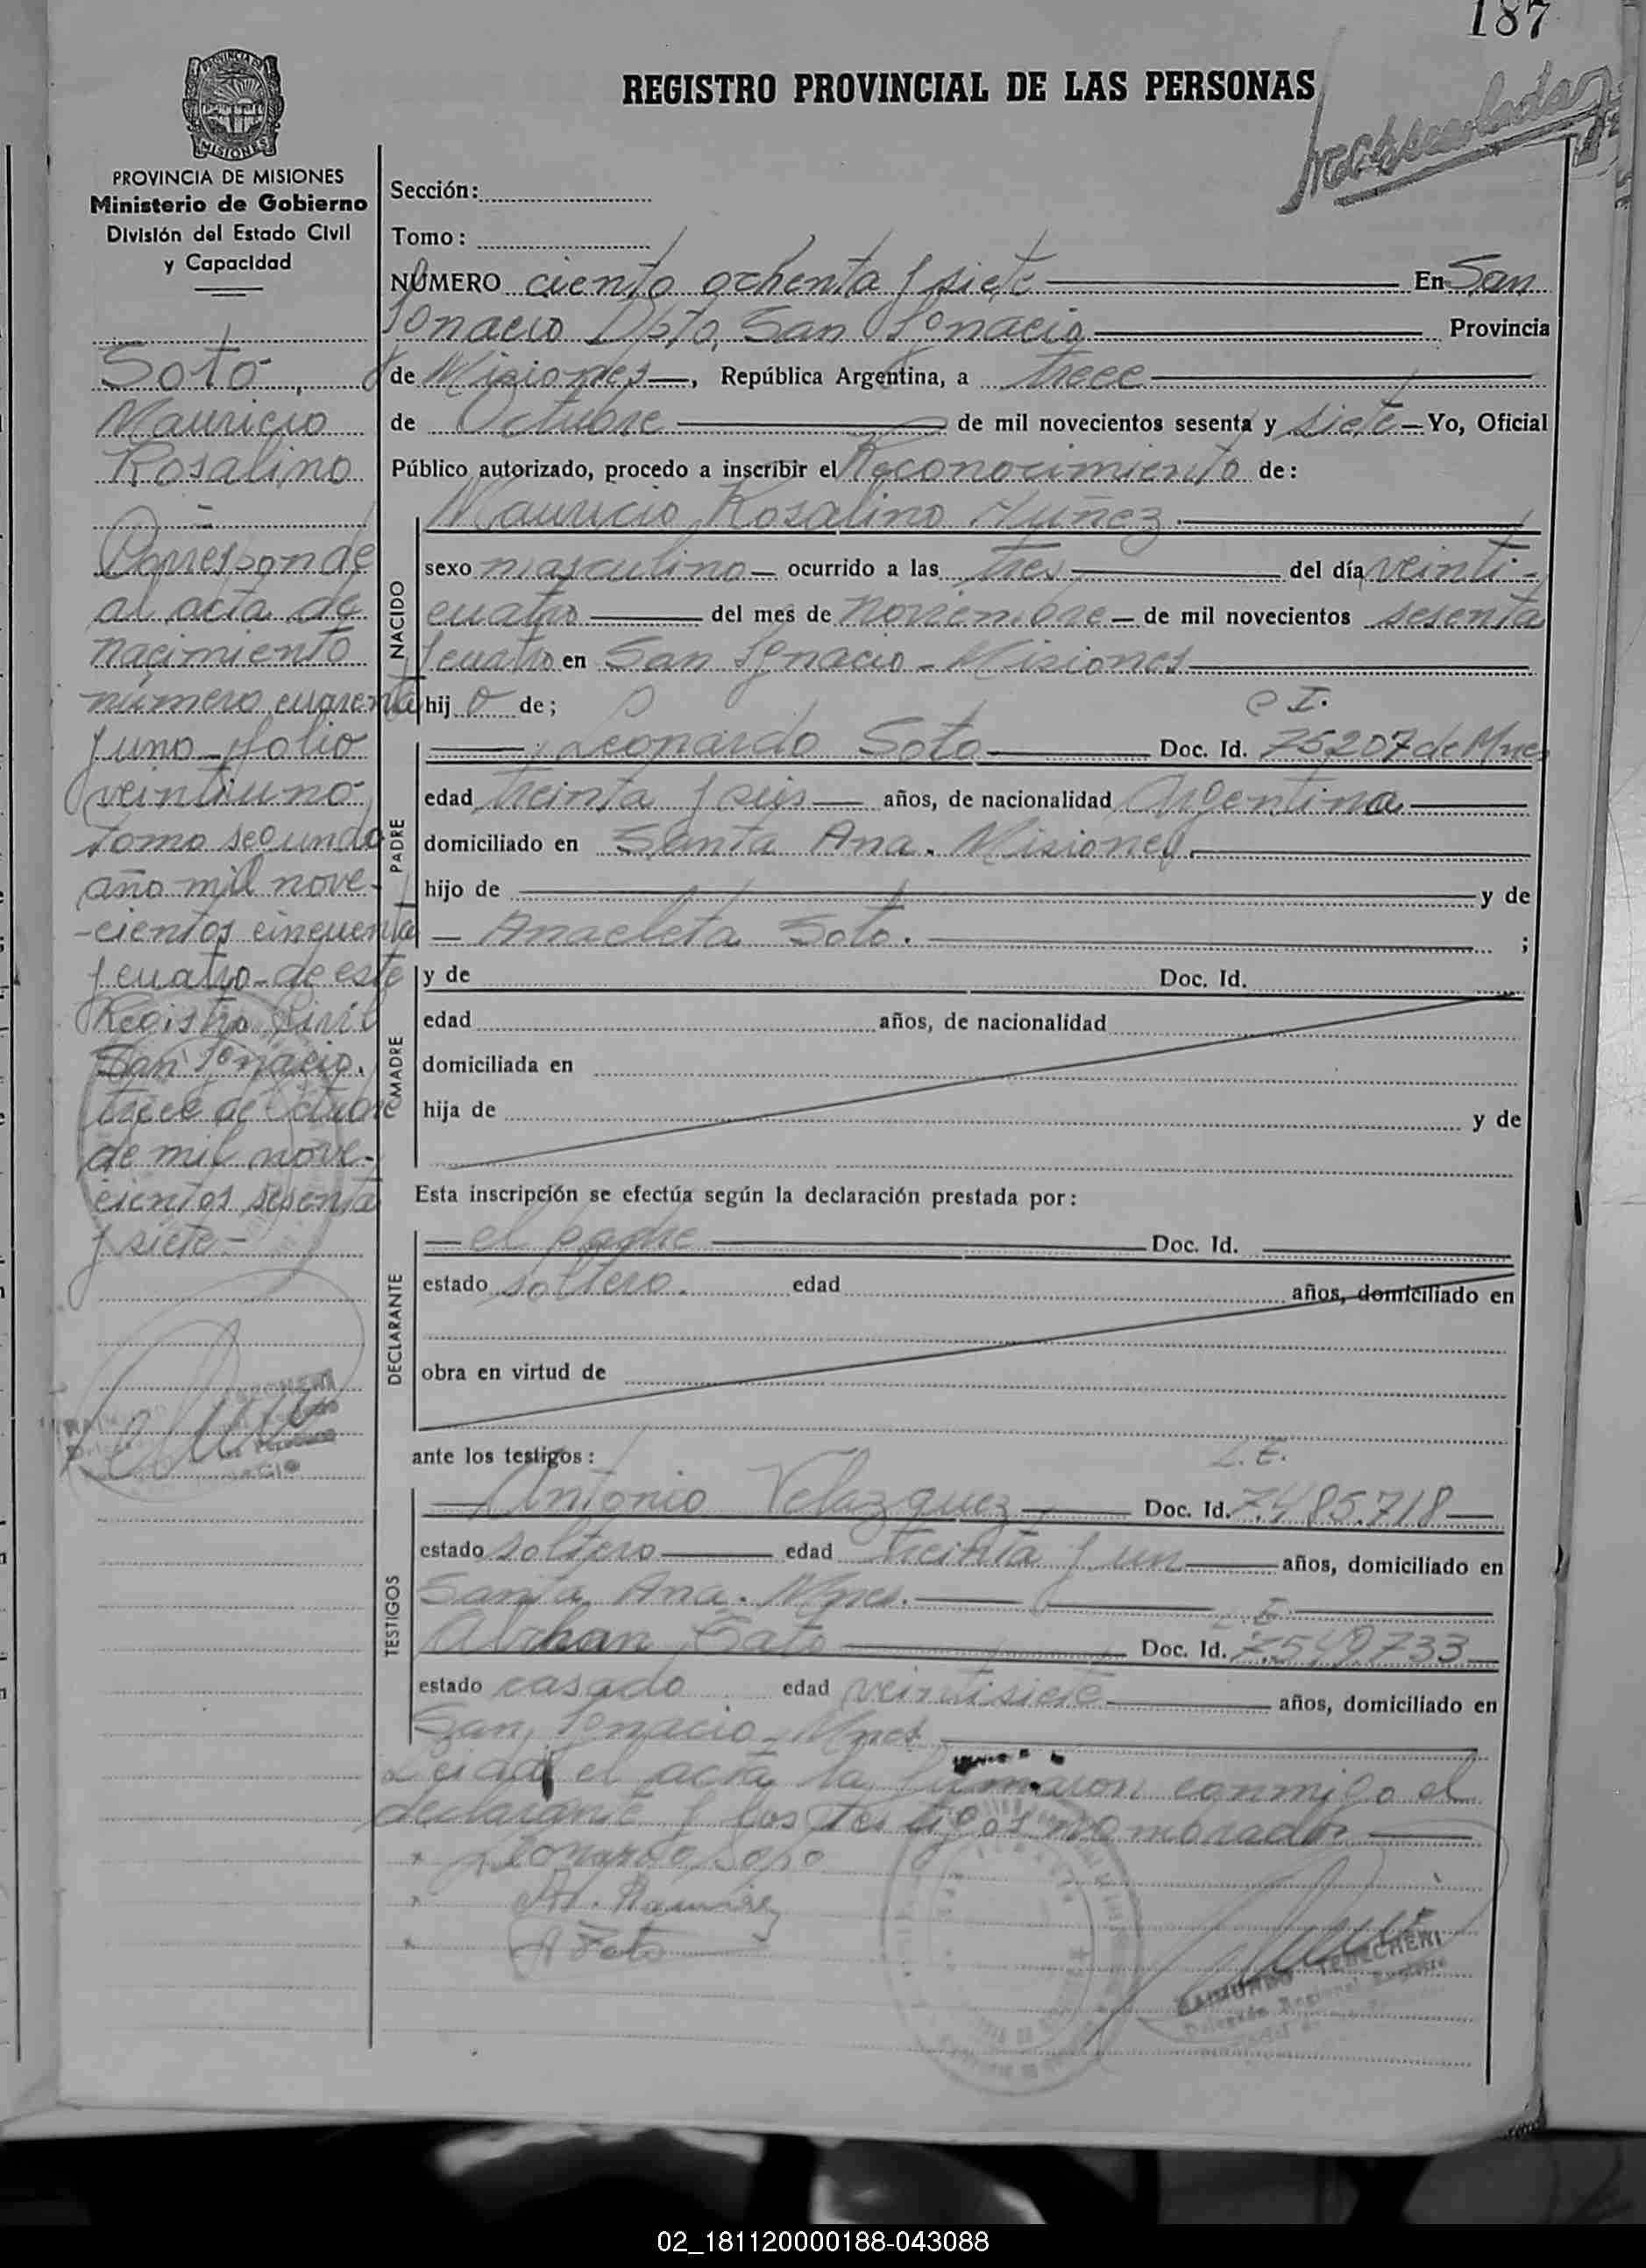 187
REGISTRO PROVINCIAL DE LAS PERSONAS
PROVINCIA DE MISIONES
Ministerio de Gobierno
División del Estado Civil
y Capacidad
Soto
Mauricio
Rosalino
Corresponde
al acta de
nacimiento
número cuarenta
y uno folio
veintiuno
tomo segundo
año mil nove-
-cientos cincuenta
y cuatro de este
Registro Civil
San Ignacio.
trece de Octubre
de mil nove-
cientos sesenta
y siete-
Sección:
Tomo:
NÚMERO ciento ochenta y siete En San
Ignacio Dpto. San Ignacio Provincia
de Misiones, República Argentina, a trece
de Octubre de mil novecientos sesenta y siete Yo, Oficial
Público autorizado, procedo a inscribir el Reconocimiento de:
NACIDO
Mauricio Rosalino Nuñez
sexo masculino ocurrido a las tres del día veinti-
cuatro del mes de noviembre de mil novecientos sesenta
y cuatro en San Ignacio - Misiones
hij o de;
C I.
PADRE
Leonardo Soto Doc. Id. 75207 de Mnes
edad treinta y seis años, de nacionalidad Argentina
domiciliado en Santa Ana. Misiones
hijo de y de
Anacleta Soto. ;
MADRE
y de Doc. Id.
edad años, de nacionalidad
domiciliada en
hija de y de
Esta inscripción se efectúa según la declaración prestada por:
DECLARANTE
el padre Doc. Id.
estado soltero. edad años, domiciliado en
obra en virtud de
ante los testigos:
L.E.
TESTIGOS
Antonio Velazquez Doc. Id. 7.485.718
estado soltero edad treinta y un años, domiciliado en
Santa Ana. Mnes.
Doc. Id. 7.549.733
estado casado edad veintisiete años, domiciliado en
San Ignacio - Mnes
Leida el acta la firmaron conmigo el
declarante y los testigos nombrados
Leonardo Soto
RAIMUNDO
02_181120000188-043088